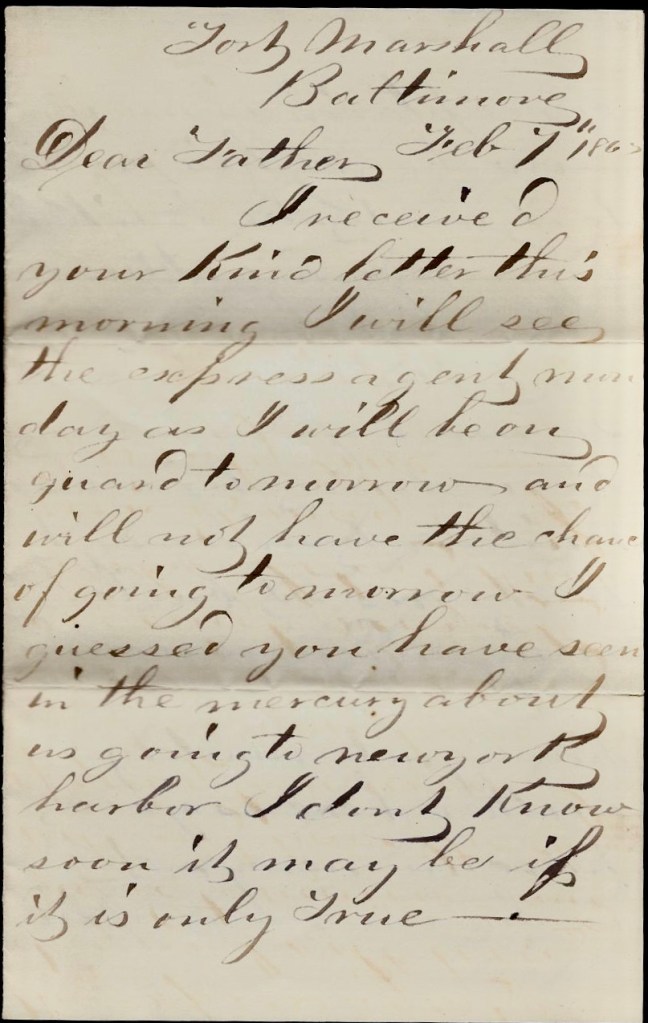 Fort Marshall
Baltimore
Dear Father Feb 7th 186
I received
your Kind letter this
morning I will see
the express agent mun
day as I will be on
guard to morrow and
will not have the chanc
of going to morrow I
guessed you have seen
in the mercury about
us going to newyork
harbor I dont Know
soon it may be if
it is only True